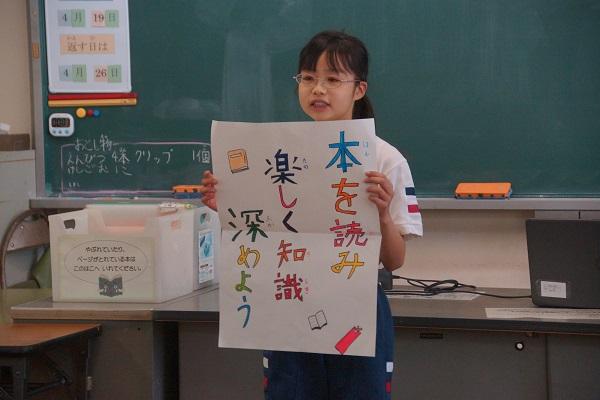 4月19日
返す日は
4月26日
おとし物
えんぴつ 4本 クリップ 1個
けしごむ 1こ
やぶれていたり、
ページがとれている本は
このはこへ いれてください。
本を読み
楽しく知識
深めよう